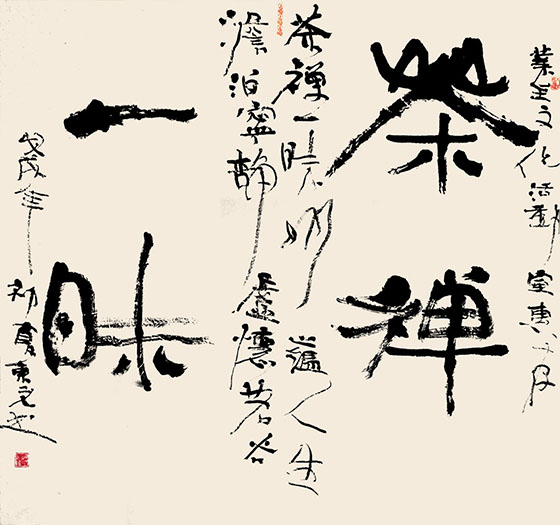 業主文化活動室惠存
茶禅
茶禅一味明心蘊人生
澹泊寧靜虛懷若谷
一味
戊戌年初夏東